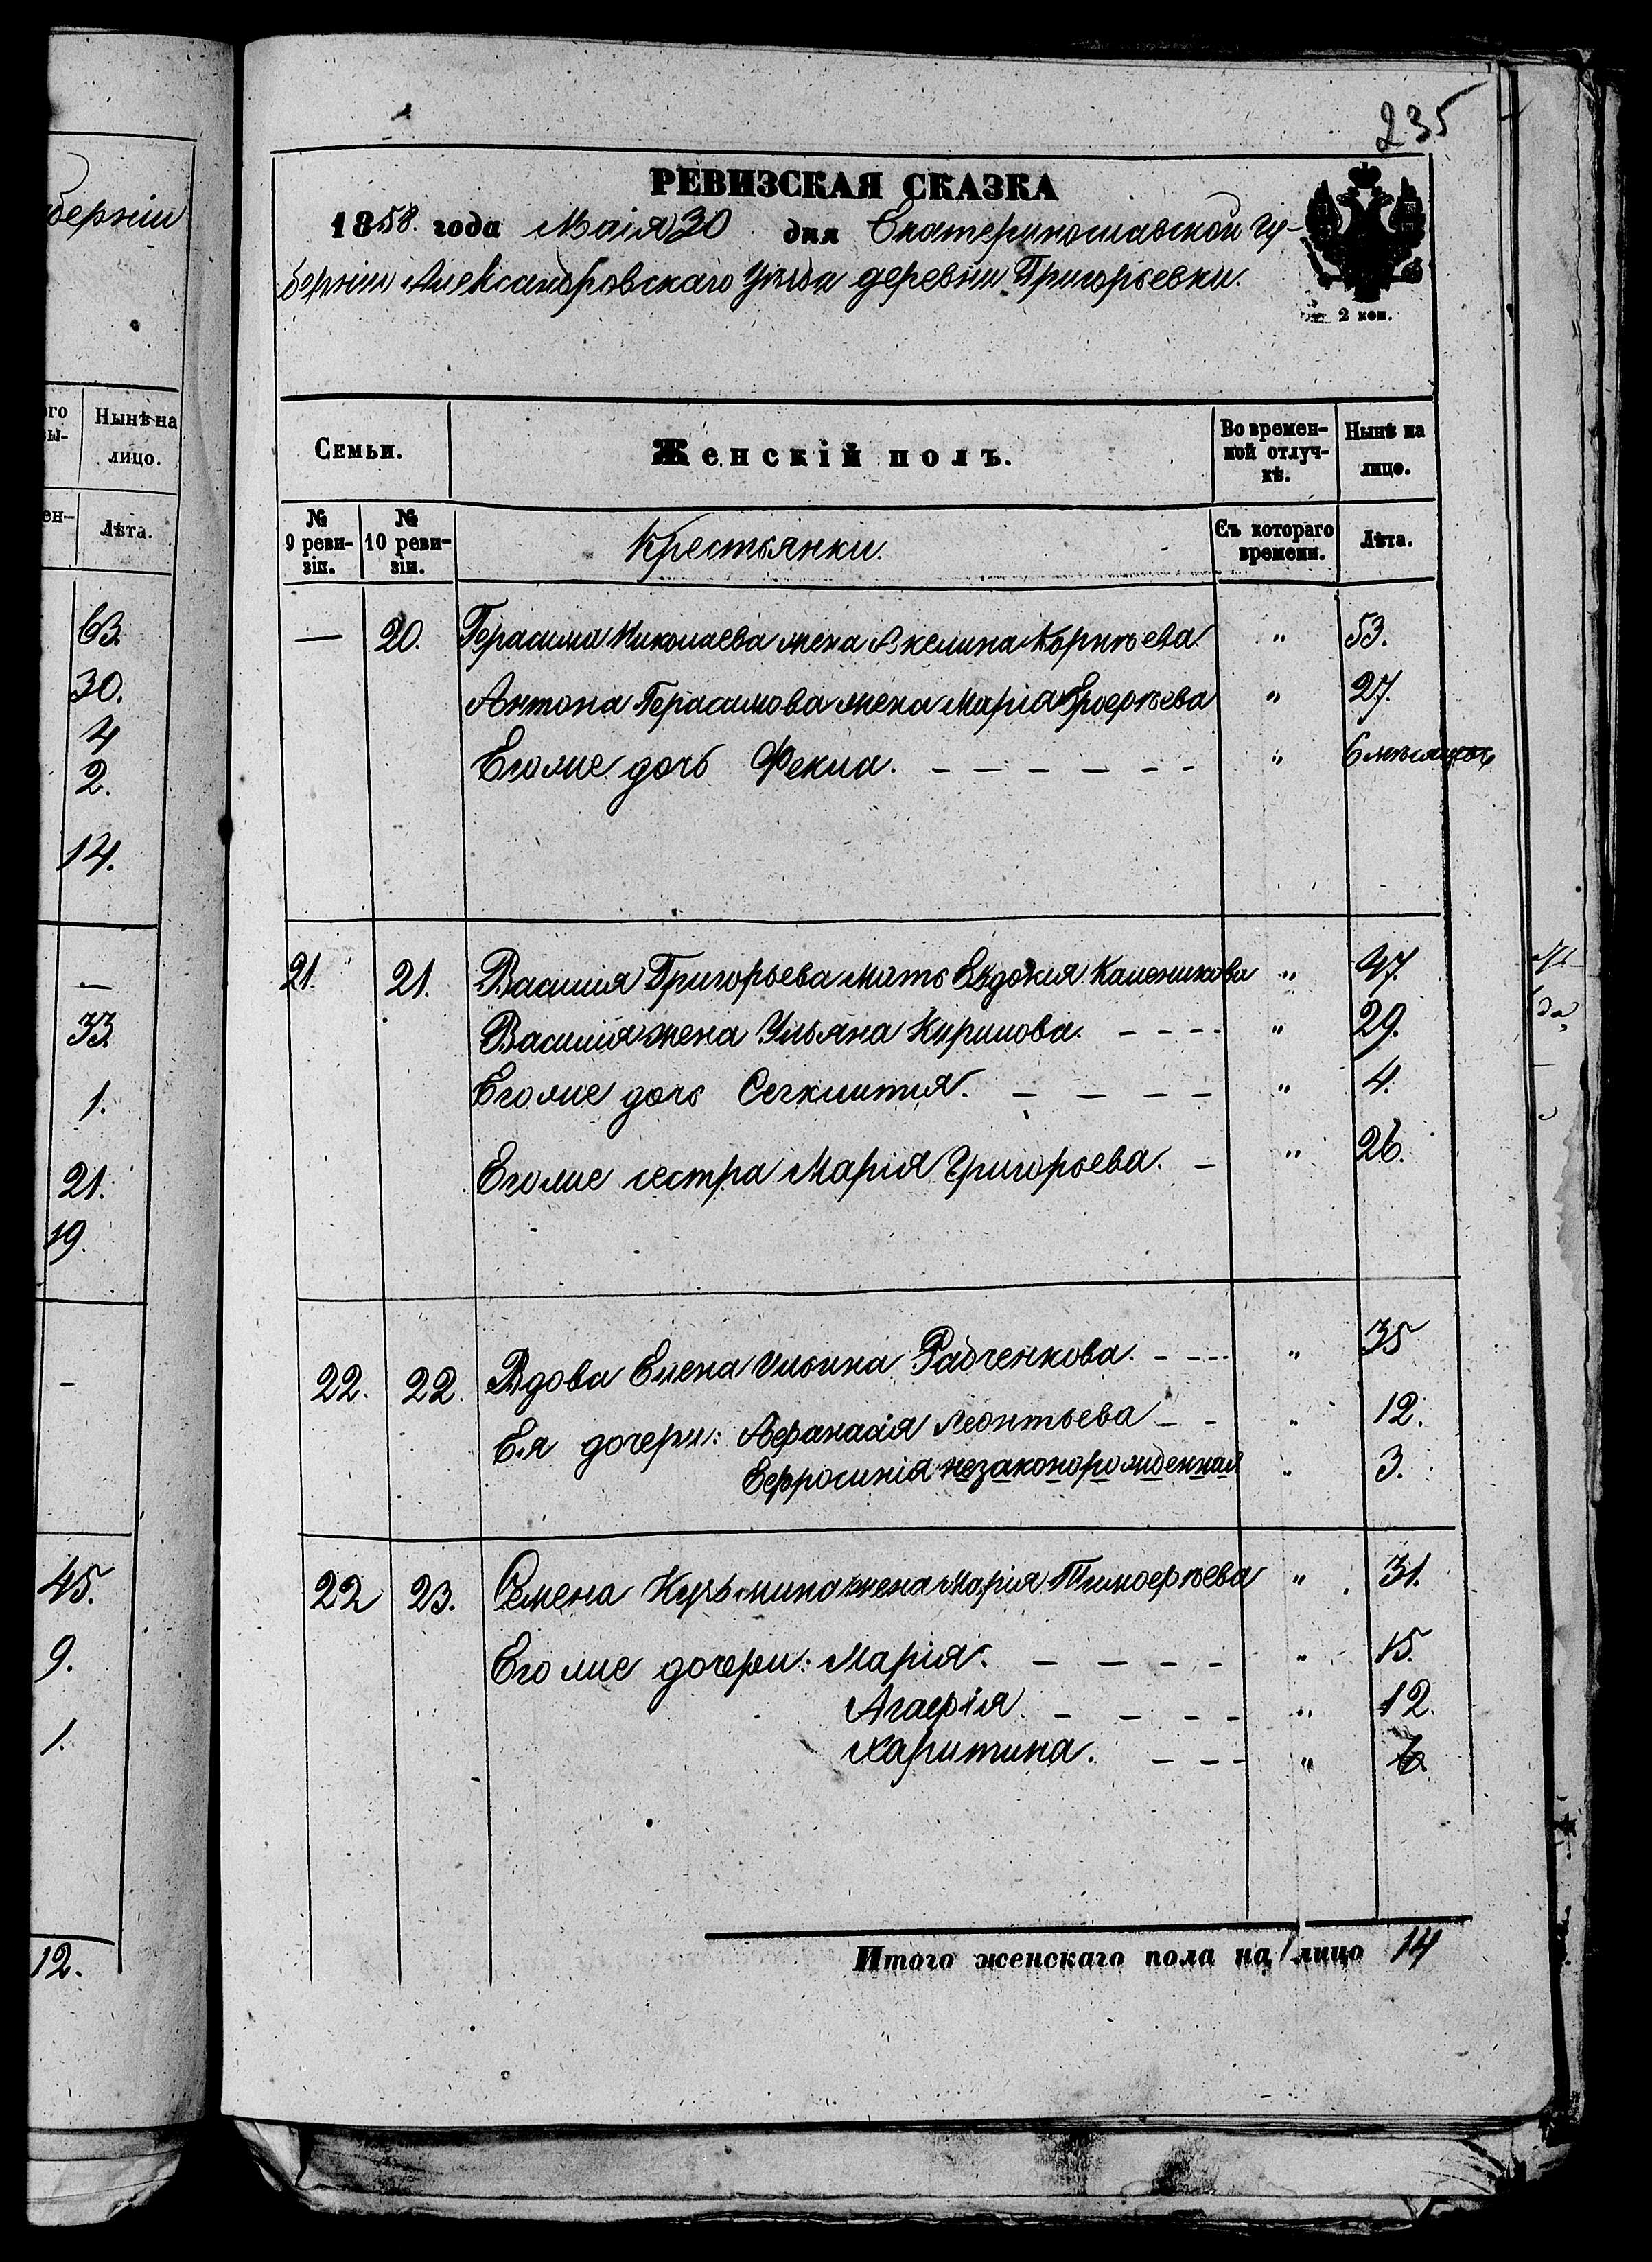 235
РЕВИЗСКАЯ СКАЗКА
1858. года Маія 30 дня Екатеринославской Гу-
берніи Александровскаго Уѣзда деревни Григорьевки.
2 коп.
берніи
Семьи.
Женскій полъ.
Во времен-
ной отлуч-
кѣ.
Нынѣ на
лицо.
№
9 реви-
зіи.
№
10 реви-
зіи.
Крестьянки.
Съ котораго
времени.
Лѣта.
— 20. Герасима Николаева жена Акелина Корнѣева " 53.
Антона Герасимова жена Марія Ерофѣева " 27.
Его же дочь Фекла. — — — — — — " 6 мѣсяцовъ
21. 21. Василія Григорьева мать Евдокія Каленикова " 47.
Василія жена Ульяна Кирилова. - - - - " 29.
Его же дочь Секлитія. — — — — " 4.
Его же сестра Марія Григорьева. — " 26.
22. 22. Вдова Елена Ильина Радченкова. - - - - " 35
Ея дочери: Афанасія Леонтьева — - " 12.
Ефросинія незаконорожденная " 3.
22 23. Семена Кузьмина жена Марія Тимофѣева " 31.
Его же дочери: Марія. — — — — — " 15.
Агафія. — — — — " 12.
Харитина. — — - "
Итого женскаго пола на лицо 14
ого
вы-
Нынѣ на
лицо.
ен-
Лѣта.
63.
30.
4
2.
14.
—
33.
1.
21.
19.
-
45.
9.
1.
12.